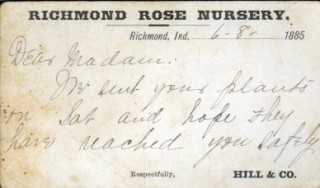 RICHMOND ROSE NURSERY,
Richmond, Ind. 6-8- 1885
Dear Madam:
We sent your plants
on Sat and hope they
have reached you safely
Respectfully, HILL & CO.